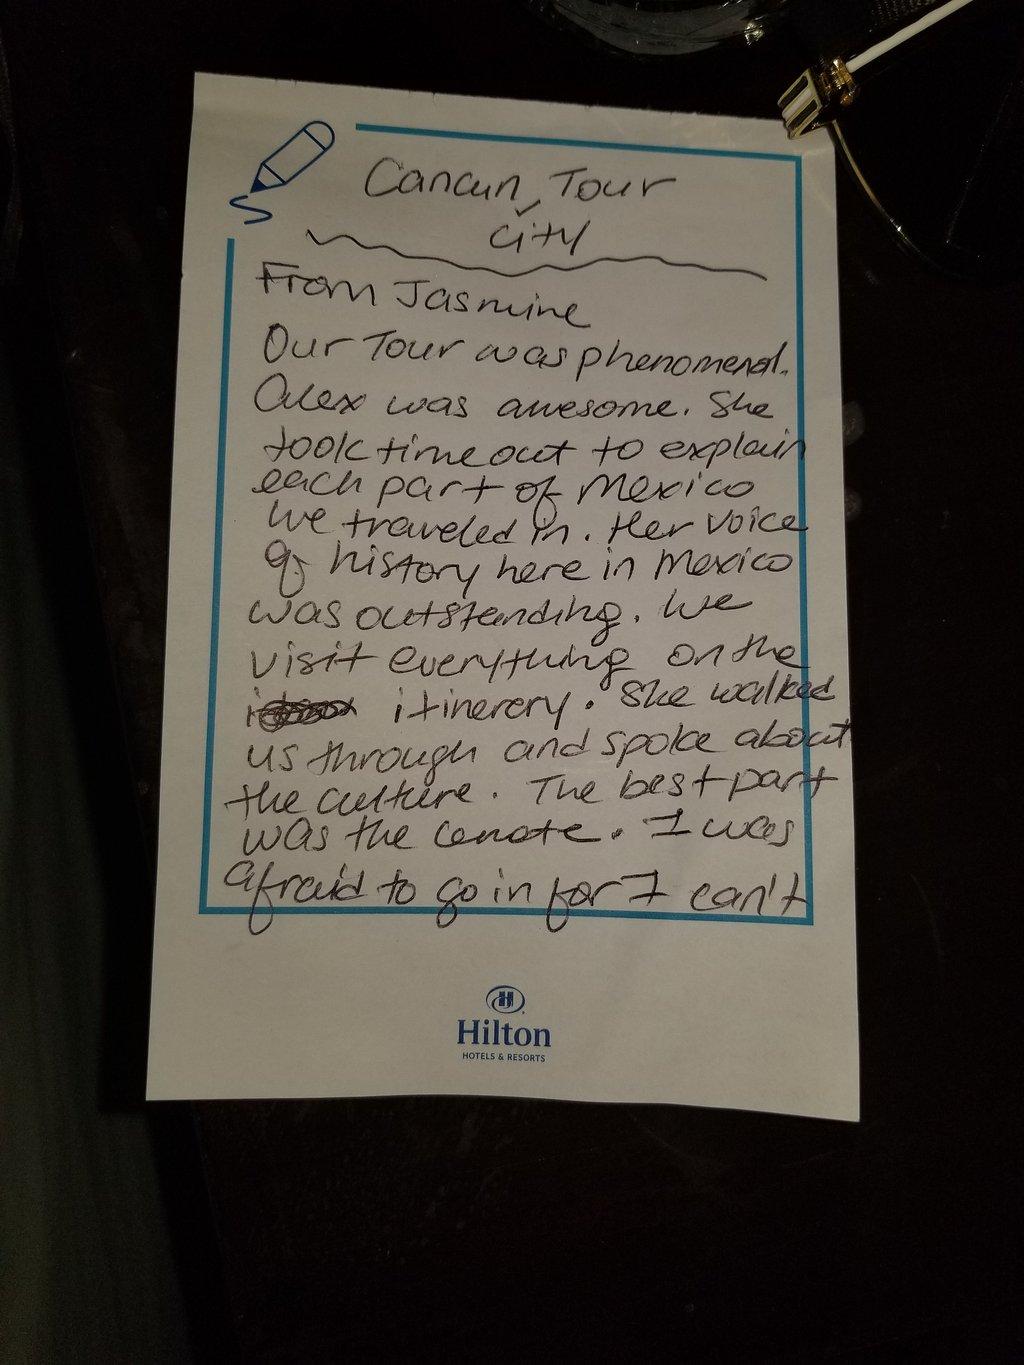 Cancun Tour
city
From Jasmine
Our Tour was phenomenal.
Alex was awesome. She
took time out to explain
each part of Mexico
we traveled in. Her voice
of history here in Mexico
was outstanding. We
visit everything on the
itinerery. She walked
us through and spoke about
the culture. The best part
was the cenote. I was
afraid to go in for I can't
Hilton
HOTELS & RESORTS